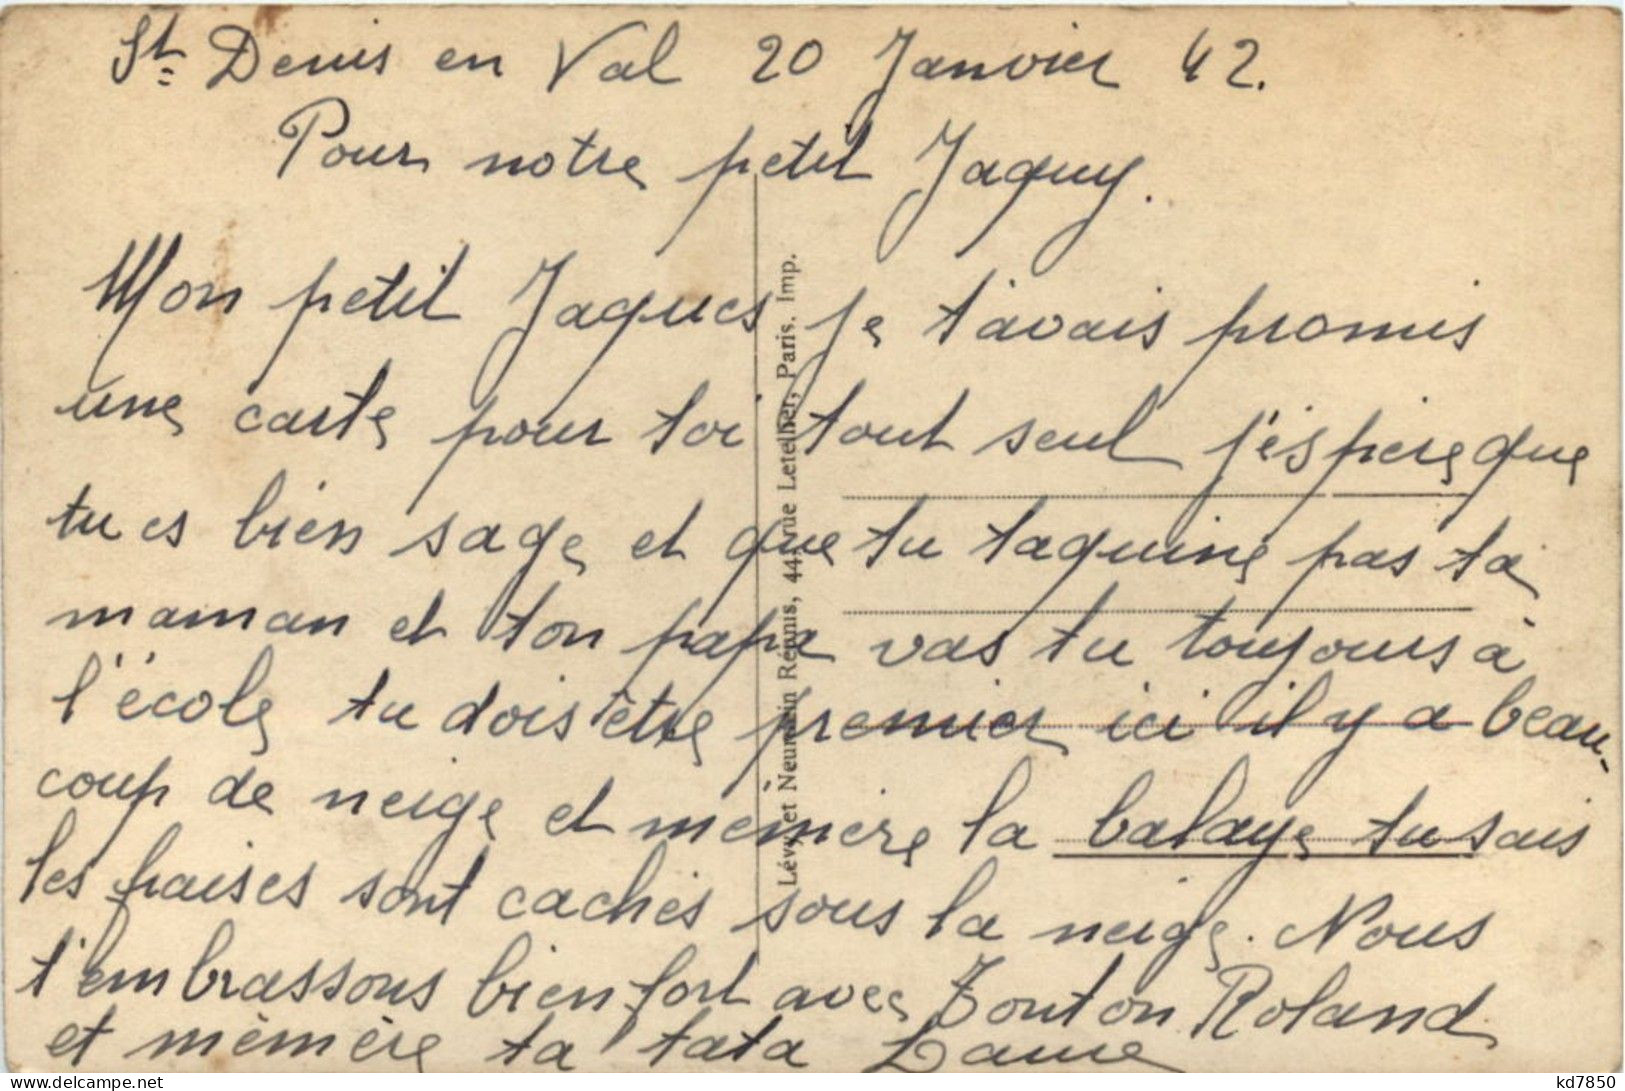 St Denis en Val 20 Janvier 42.
Pour notre petit Jaquy.
Mon petit Jaques je t'avais promis
une carte pour toi tout seul j'éspère que
tu es bien sage et que tu taquine pas ta
maman et ton papa vas tu toujours à
l'école tu dois être premier ici il y a beau-
coup de neige et mémère la balaye tu sais
les fraises sont cachés sous la neige. Nous
t'embrassons bien fort avec Tonton Roland
et mémère ta tata
Lévy et Neurdein Réunis, 44, rue Letellier, Paris. Imp.
kd7850